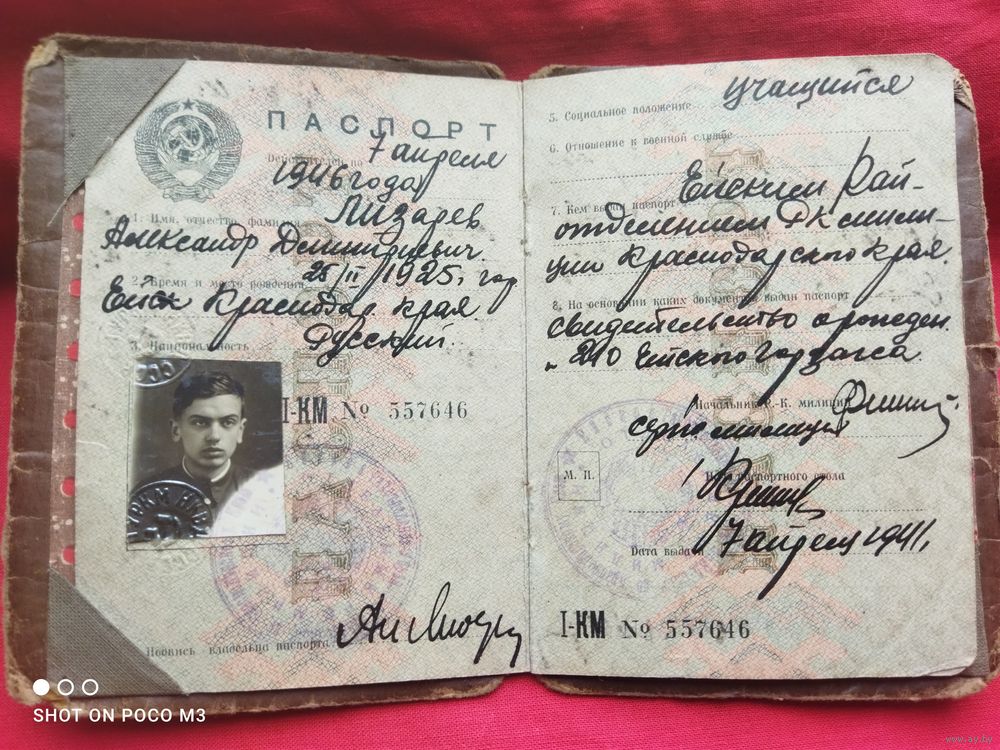 ПАСПОРТ
Действителен по 7 апреля
1946 года
1. Имя, отчество, фамилия Лизарев
Александр Дмитриевич.
2. Время и место рождения 26/II 1925. год
Ейск Краснодар края
3. Национальность Русский.
I-КМ № 557646
М. П.
Подпись владельца паспорта
5. Социальное положение учащийся
6. Отношение к военной службе
7. Кем выдан паспорт Ейским Рай-
отделением РК мили-
ции Краснодарского края.
8. На основании каких документов выдан паспорт
свидетельство о рожден.
210 Ейского Горзагса.
Начальник Р.-К. милиции
Нач. паспортного стола
Дата выдачи 7 апреля 1941,
I-КМ № 557646
SHOT ON POCO M3
www.ay.by